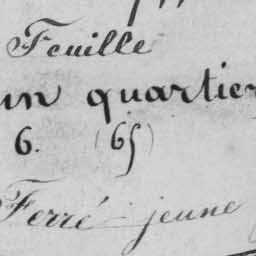 Feuille
un quartier
6. (65)
Ferré jeune